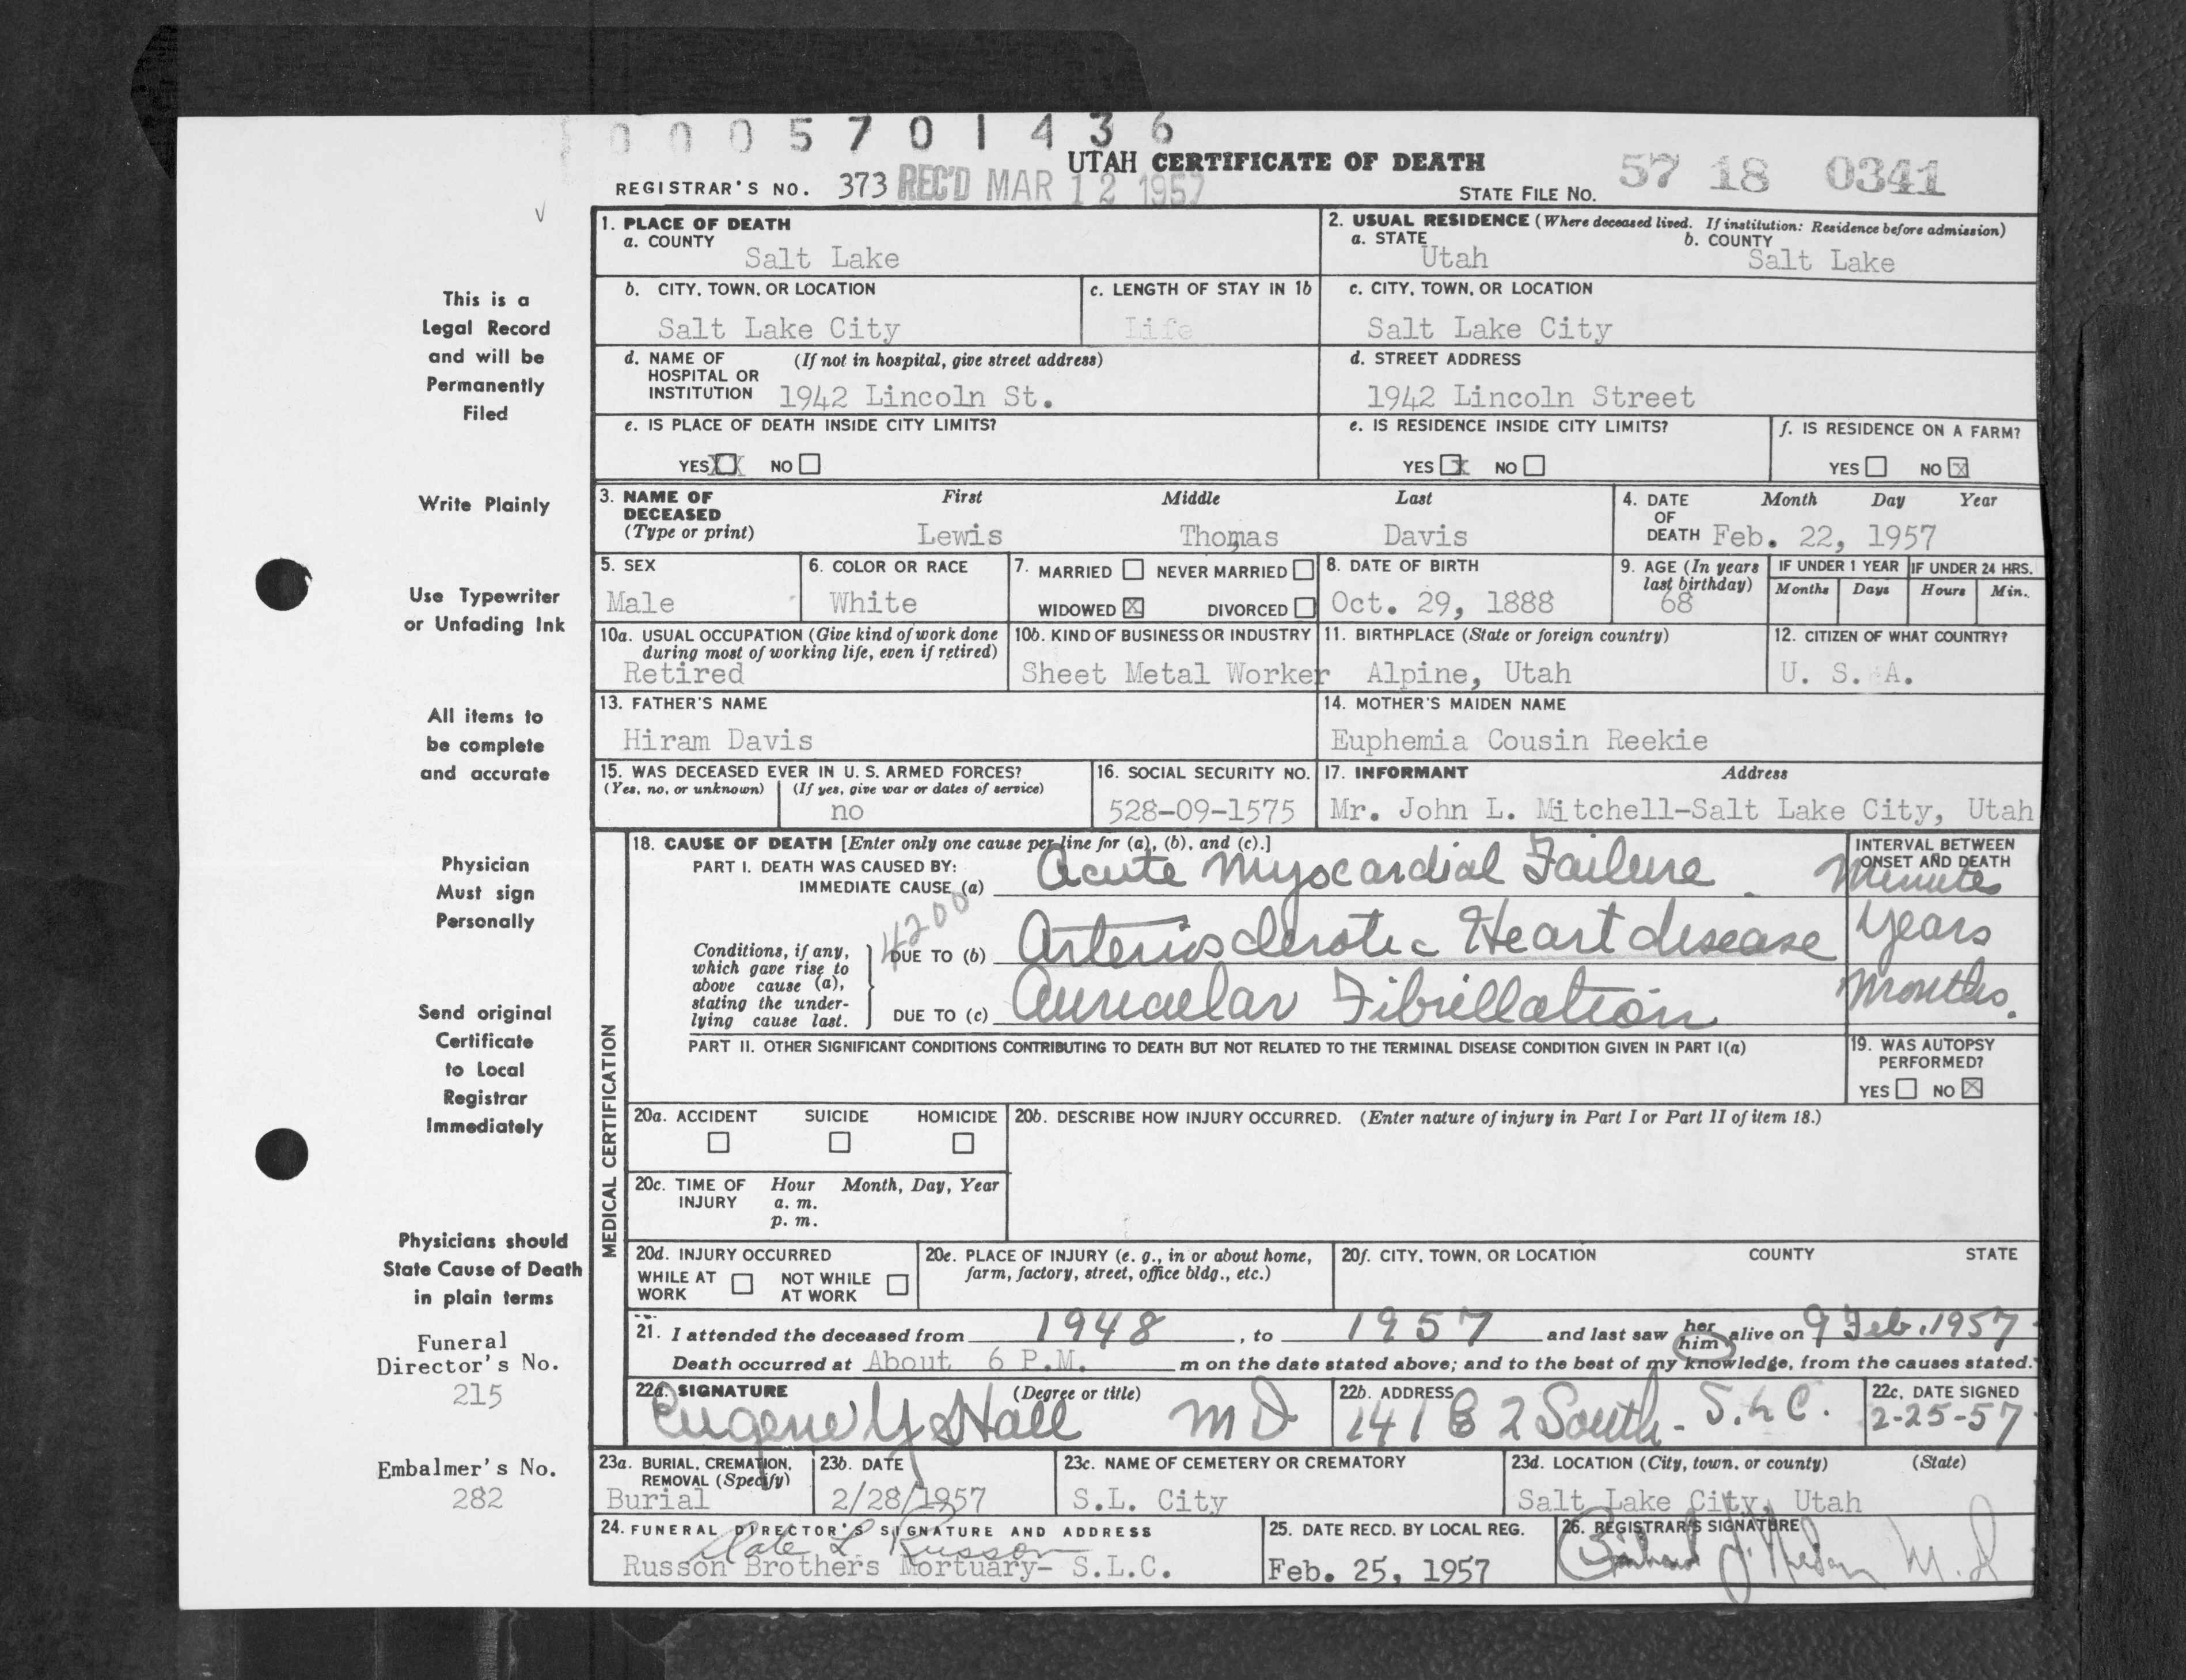 0005701436
UTAH CERTIFICATE OF DEATH
REGISTRAR'S NO. 373 REC'D MAR 12 1957 STATE FILE NO. 57 18 0341
This is a
Legal Record
and will be
Permanently
Filed
Write Plainly
Use Typewriter
or Unfading Ink
All items to
be complete
and accurate
Physician
Must sign
Personally
Send original
Certificate
to Local
Registrar
Immediately
Physicians should
State Cause of Death
in plain terms
Funeral
Director's No.
215
Embalmer's No.
282
1. PLACE OF DEATH
a. COUNTY
Salt Lake
2. USUAL RESIDENCE (Where deceased lived. If institution: Residence before admission)
a. STATE b. COUNTY
Utah Salt Lake
b. CITY, TOWN, OR LOCATION
Salt Lake City
c. LENGTH OF STAY IN 1b
Life
c. CITY, TOWN, OR LOCATION
Salt Lake City
d. NAME OF (If not in hospital, give street address)
HOSPITAL OR
INSTITUTION 1942 Lincoln St.
d. STREET ADDRESS
1942 Lincoln Street
e. IS PLACE OF DEATH INSIDE CITY LIMITS?
YES X NO
e. IS RESIDENCE INSIDE CITY LIMITS?
YES X NO
f. IS RESIDENCE ON A FARM?
YES NO X
3. NAME OF First Middle Last
DECEASED
(Type or print) Lewis Thomas Davis
4. DATE Month Day Year
OF
DEATH Feb. 22, 1957
5. SEX
Male
6. COLOR OR RACE
White
7. MARRIED NEVER MARRIED
WIDOWED X DIVORCED
8. DATE OF BIRTH
Oct. 29, 1888
9. AGE (In years
last birthday)
68
IF UNDER 1 YEAR IF UNDER 24 HRS.
Months Days Hours Min.
10a. USUAL OCCUPATION (Give kind of work done
during most of working life, even if retired)
Retired
10b. KIND OF BUSINESS OR INDUSTRY
Sheet Metal Worker
11. BIRTHPLACE (State or foreign country)
Alpine, Utah
12. CITIZEN OF WHAT COUNTRY?
U. S. A.
13. FATHER'S NAME
Hiram Davis
14. MOTHER'S MAIDEN NAME
Euphemia Cousin Reekie
15. WAS DECEASED EVER IN U. S. ARMED FORCES?
(Yes, no, or unknown) (If yes, give war or dates of service)
no
16. SOCIAL SECURITY NO.
528-09-1575
17. INFORMANT Address
Mr. John L. Mitchell-Salt Lake City, Utah
MEDICAL CERTIFICATION
18. CAUSE OF DEATH [Enter only one cause per line for (a), (b), and (c).]
PART I. DEATH WAS CAUSED BY:
IMMEDIATE CAUSE (a) Acute Myocardial Failure
INTERVAL BETWEEN
ONSET AND DEATH
Minutes
4200
Conditions, if any,
which gave rise to
above cause (a),
stating the under-
lying cause last.
DUE TO (b) Arteriosclerotic Heart disease years
DUE TO (c) Auricular Fibrillation Months.
PART II. OTHER SIGNIFICANT CONDITIONS CONTRIBUTING TO DEATH BUT NOT RELATED TO THE TERMINAL DISEASE CONDITION GIVEN IN PART I(a)
19. WAS AUTOPSY
PERFORMED?
YES NO X
20a. ACCIDENT SUICIDE HOMICIDE
20b. DESCRIBE HOW INJURY OCCURRED. (Enter nature of injury in Part I or Part II of item 18.)
20c. TIME OF Hour Month, Day, Year
INJURY a. m.
p. m.
20d. INJURY OCCURRED
WHILE AT NOT WHILE
WORK AT WORK
20e. PLACE OF INJURY (e. g., in or about home,
farm, factory, street, office bldg., etc.)
20f. CITY, TOWN, OR LOCATION COUNTY STATE
21. I attended the deceased from 1948, to 1957 and last saw her him alive on 9 Feb. 1957
Death occurred at About 6 P.M. m on the date stated above; and to the best of my knowledge, from the causes stated.
22a. SIGNATURE (Degree or title)
Eugene Y Hall MD
22b. ADDRESS
141 E 2 South - S.L.C.
22c. DATE SIGNED
2-25-57
23a. BURIAL, CREMATION,
REMOVAL (Specify)
Burial
23b. DATE
2/28/1957
23c. NAME OF CEMETERY OR CREMATORY
S.L. City
23d. LOCATION (City, town, or county) (State)
Salt Lake City, Utah
24. FUNERAL DIRECTOR'S SIGNATURE AND ADDRESS
Dale L Russon
Russon Brothers Mortuary- S.L.C.
25. DATE RECD. BY LOCAL REG.
Feb. 25, 1957
26. REGISTRAR'S SIGNATURE
M.D